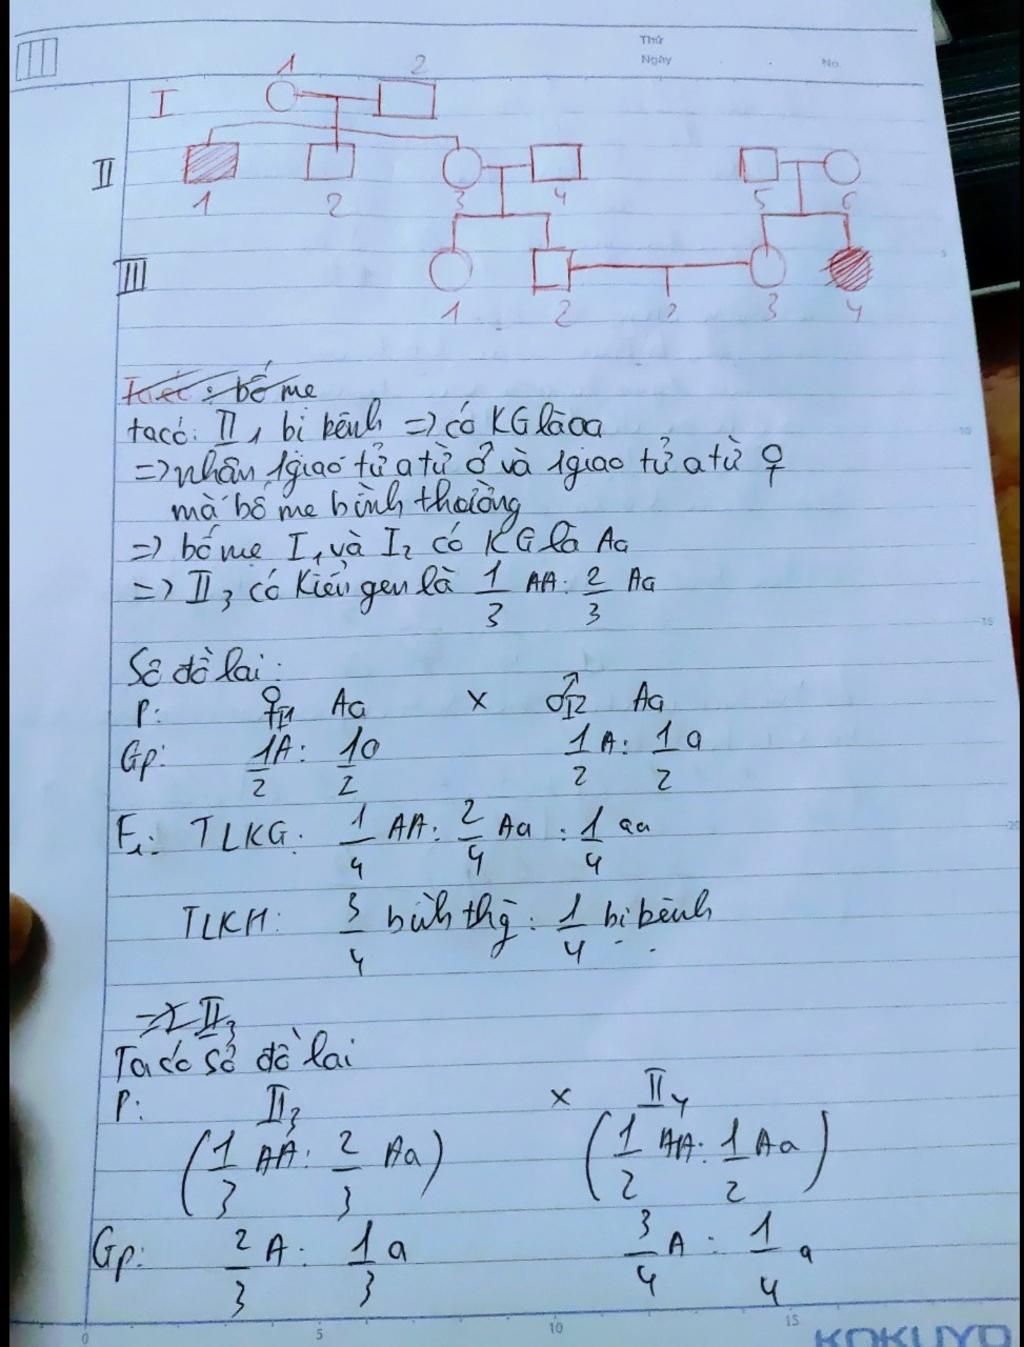 Thứ
Ngày No.
1 2
I
II
1 2 3 4 5 6
III
1 2 ? 3 4
bố mẹ
ta có: II1 bị bệnh => có KG là aa
=> nhận 1 giao tử a từ ♂ và 1 giao tử a từ ♀
mà bố mẹ bình thường
=> bố mẹ I1 và I2 có KG là Aa
=> II3 có kiểu gen là 1/3 AA : 2/3 Aa
Sơ đồ lai:
P: ♀I1 Aa x ♂I2 Aa
Gp: 1/2 A : 1/2 a 1/2 A : 1/2 a
F1: TLKG: 1/4 AA : 2/4 Aa : 1/4 aa
TLKH: 3/4 bình thg : 1/4 bị bệnh
=> II3
Ta có sơ đồ lai
P: II3 x II4
(1/3 AA : 2/3 Aa) (1/2 AA : 1/2 Aa)
Gp: 2/3 A : 1/3 a 3/4 A : 1/4 a
0 5 10 15
KOKUYO